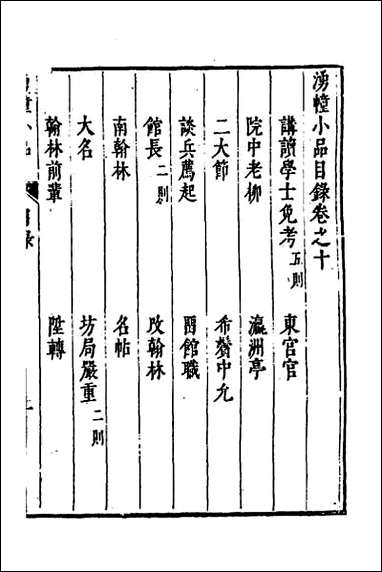 湧幢小品目錄卷之十
講讀學士免考五則　東宮官
院中老柳　瀛洲亭
二大節　希中允
談兵薦起　畱館職
館長二則　改翰林
南翰林　名帖
大名　坊局嚴重二則
翰林前輩　陞轉
小品　目錄